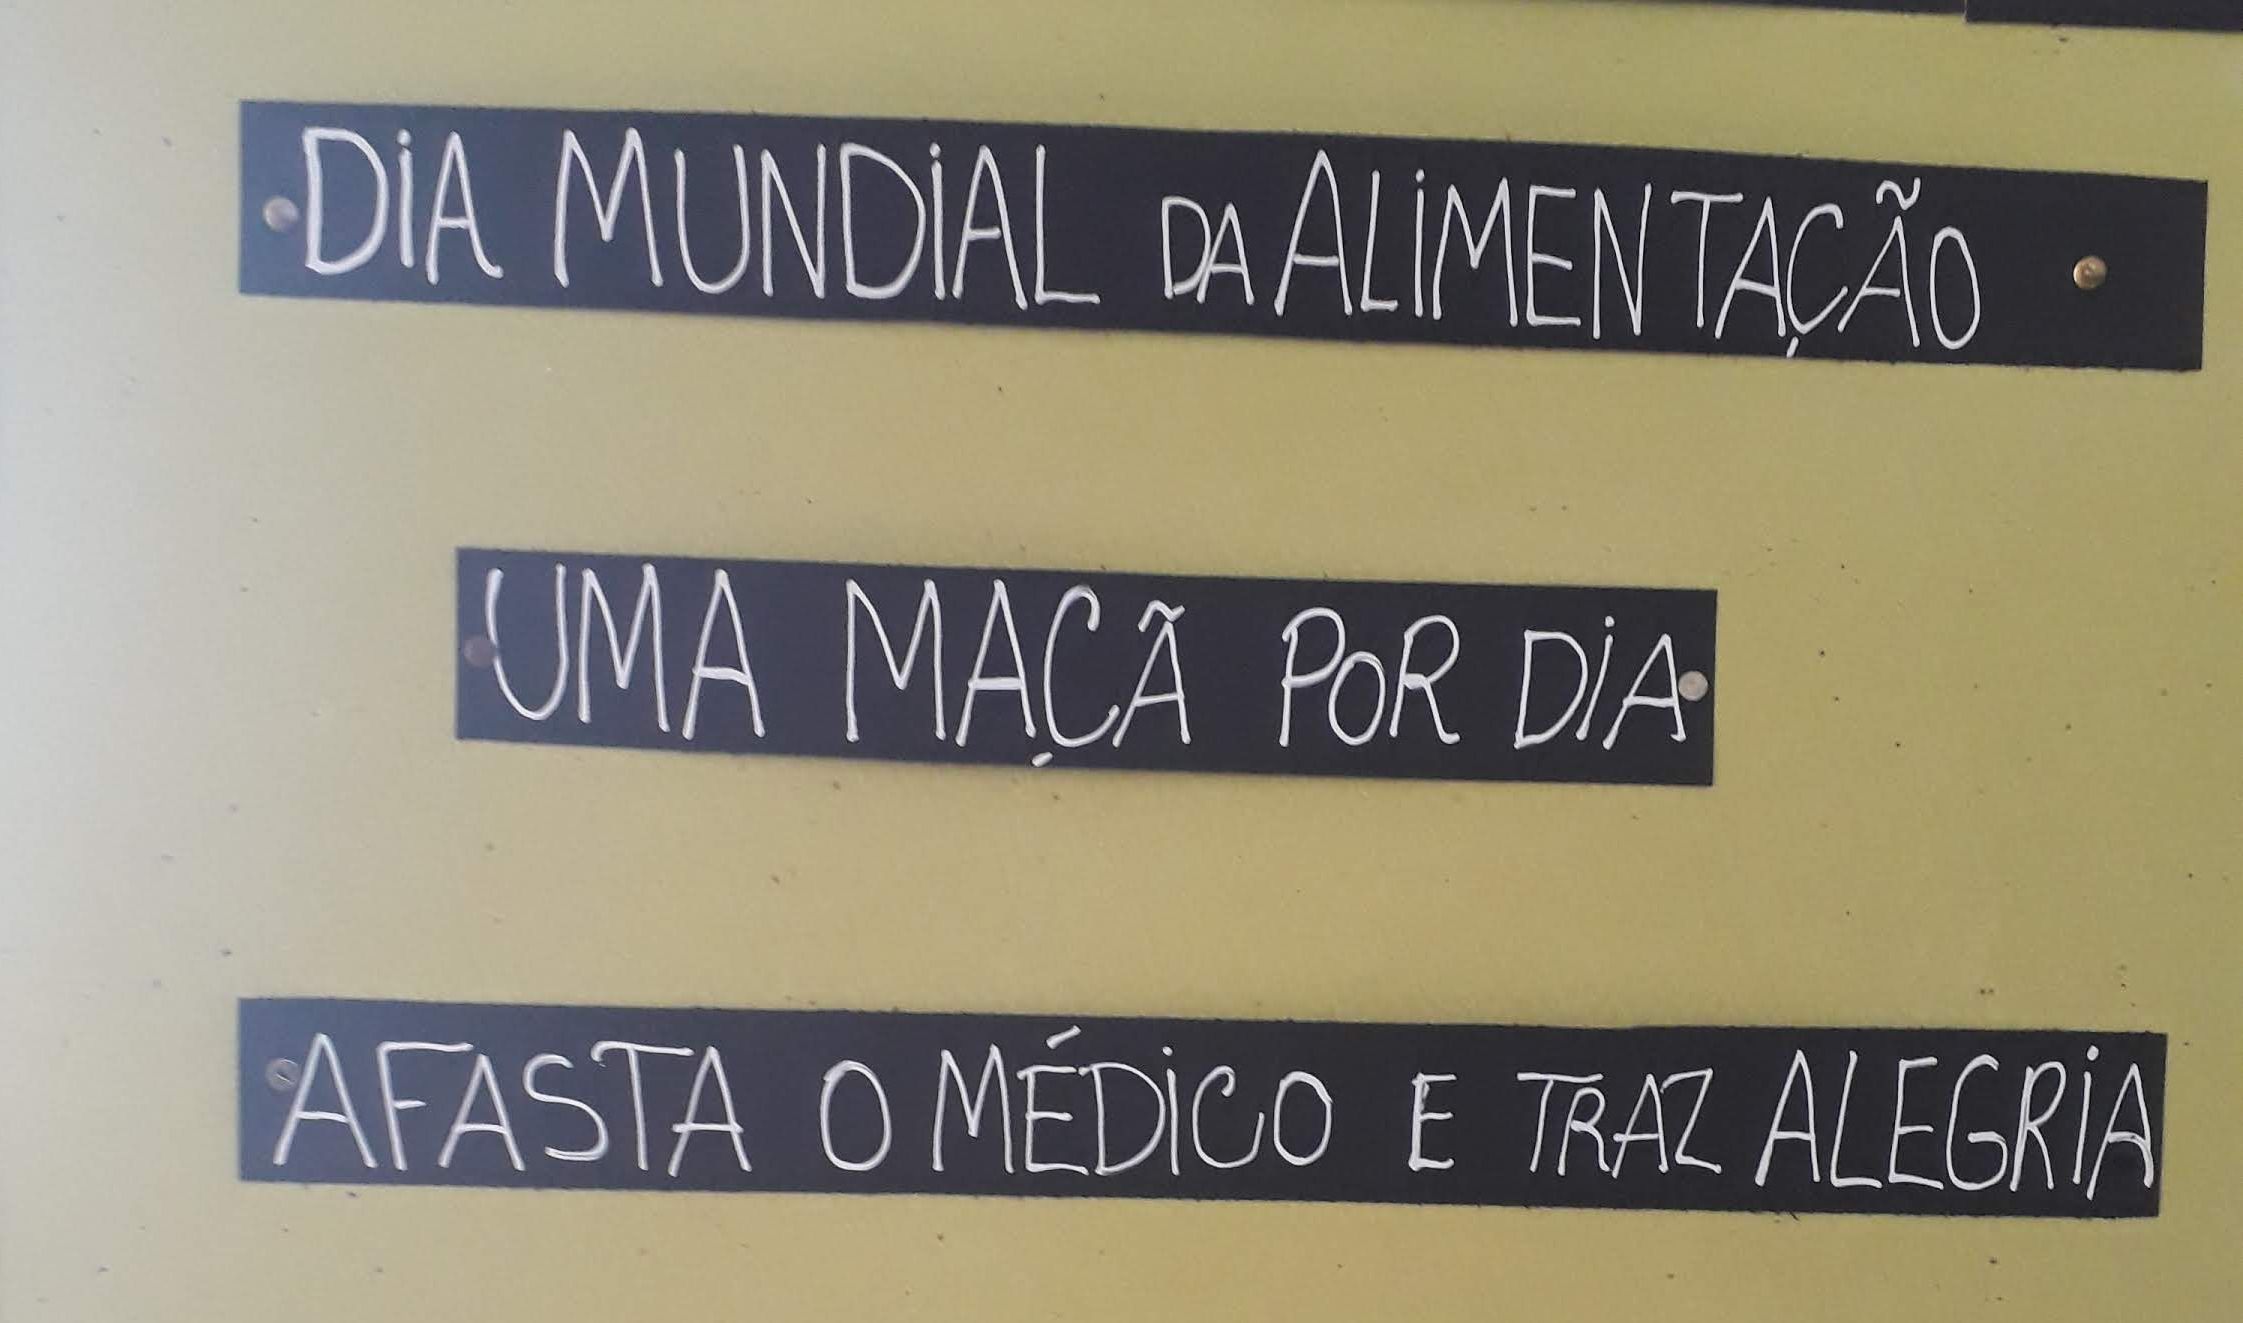 DIA MUNDIAL DA ALIMENTAÇÃO
UMA MAÇÃ POR DIA
AFASTA O MÉDICO E TRAZ ALEGRIA